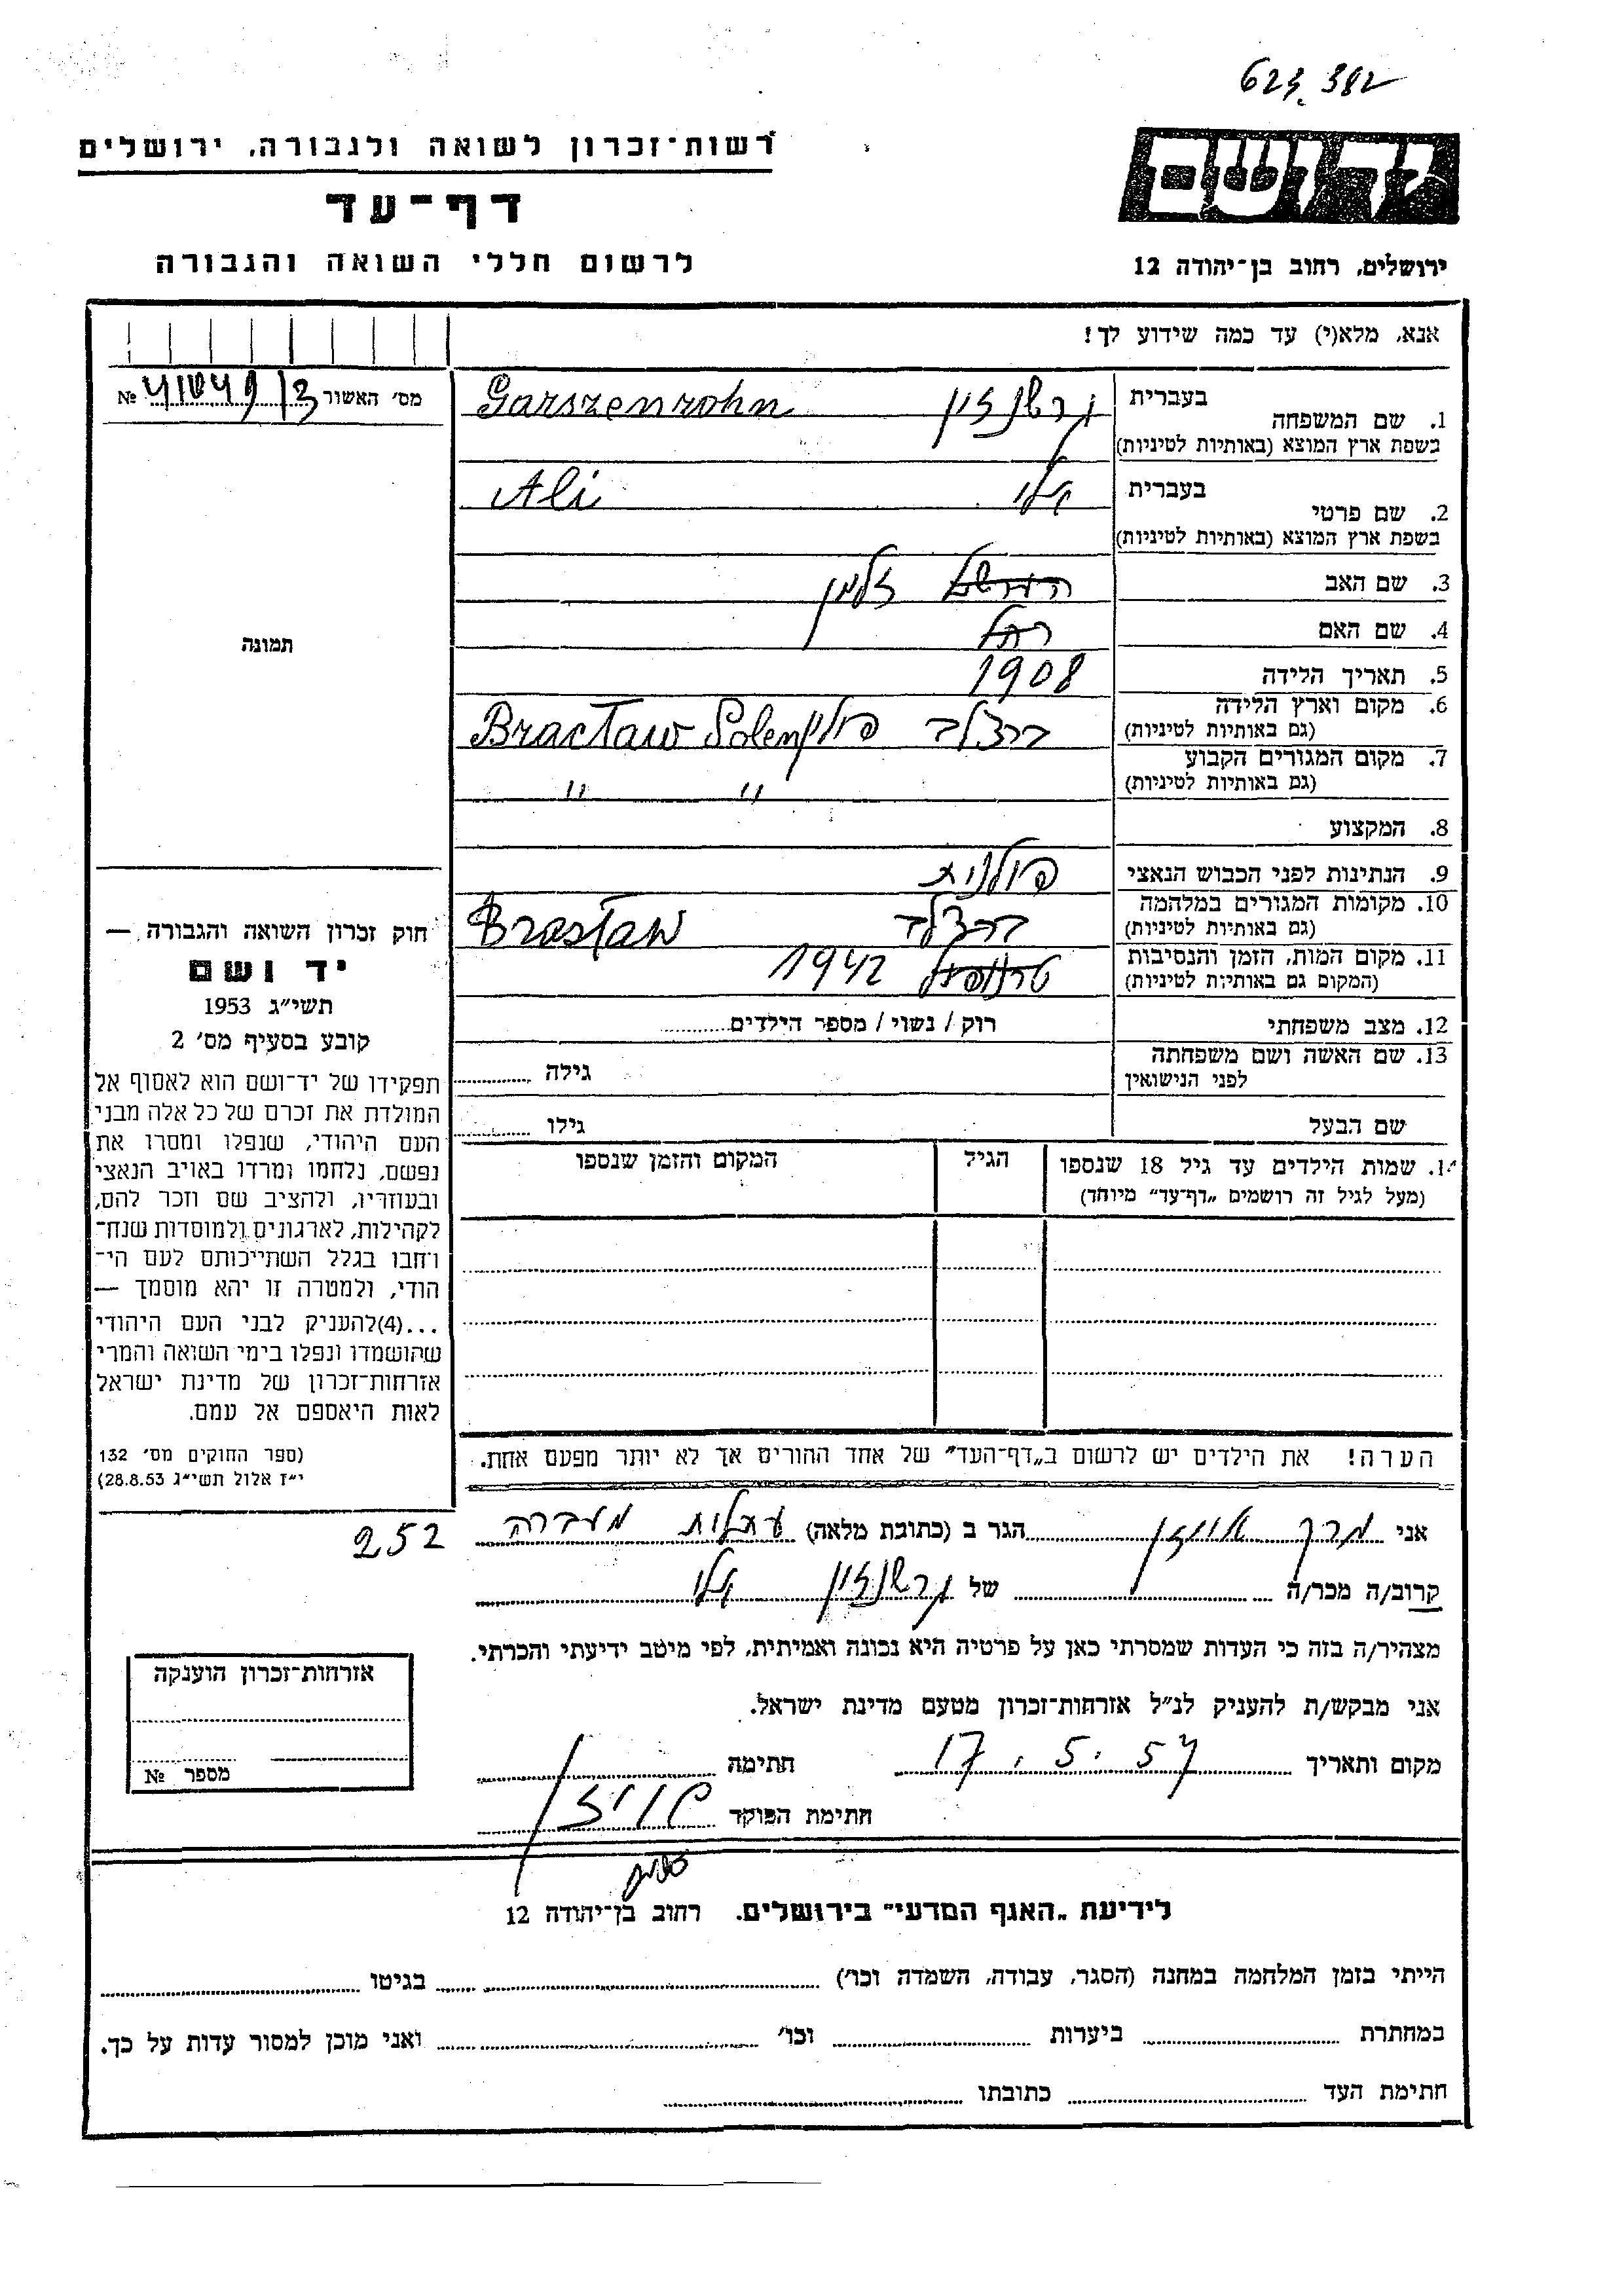 623.382
רשות-זכרון לשואה ולגבורה, ירושלים
דף-עד
לרשום חללי השואה והגבורה
ידושם
ירושלים, רחוב בן-יהודה 12
אנא, מלא(י) עד כמה שידוע לך!
מס' האשור №
1. שם המשפחה בעברית גרשנזון Garszenzohn
בשפת ארץ המוצא (באותיות לטיניות)
2. שם פרטי בעברית Ali
בשפת ארץ המוצא (באותיות לטיניות)
3. שם האב זלמן
4. שם האם רחל
5. תאריך הלידה 1908
6. מקום וארץ הלידה ברצלב פולין Bractaw Polen
(גם באותיות לטיניות)
7. מקום המגורים הקבוע " "
(גם באותיות לטיניות)
8. המקצוע
9. הנתינות לפני הכבוש הנאצי פולנית
10. מקומות המגורים במלחמה ברצלב Brastaw
(גם באותיות לטיניות)
11. מקום המות, הזמן והנסיבות 1942
(המקום גם באותיות לטיניות)
12. מצב משפחתי רוק / נשוי / מספר הילדים
13. שם האשה ושם משפחתה גילה
לפני הנישואין
שם הבעל גילו
1. שמות הילדים עד גיל 18 שנספו הגיל המקום והזמן שנספו
(מעל לגיל זה רושמים „דף-עד" מיוחד)
הערה! את הילדים יש לרשום ב„דף-העד" של אחד ההורים אך לא יותר מפעם אחת.
תמונה
חוק זכרון השואה והגבורה —
יד ושם
תשי"ג 1953
קובע בסעיף מס' 2
תפקידו של יד-ושם הוא לאסוף אל
המולדת את זכרם של כל אלה מבני
העם היהודי, שנפלו ומסרו את
נפשם, נלחמו ומרדו באויב הנאצי
ובעוזריו, ולהציב שם וזכר להם,
לקהילות, לארגונים ולמוסדות שנח-
רחבו בגלל השתייכותם לעם הי-
הודי, ולמטרה זו יהא מוסמך —
...(4)להעניק לבני העם היהודי
שהושמדו ונפלו בימי השואה והמרי
אזרחות-זכרון של מדינת ישראל
לאות היאספם אל עמם.
(ספר החוקים מס' 132
י"ז אלול תשי"ג 28.8.53)
אני הגר ב (כתובת מלאה) עתלית מעברה 252
קרוב/ה מכר/ה של גרשנזון
מצהיר/ה בזה כי העדות שמסרתי כאן על פרטיה היא נכונה ואמיתית, לפי מיטב ידיעתי והכרתי.
אני מבקש/ת להעניק לנ"ל אזרחות-זכרון מטעם מדינת ישראל.
מקום ותאריך 17.5.57 חתימה
חתימת הפוקד
אזרחות-זכרון הוענקה
מספר №
לידיעת „האגף המדעי" בירושלים. רחוב בן-יהודה 12
הייתי בזמן המלחמה במחנה (הסגר, עבודה, השמדה וכו') בגיטו
במחתרת ביערות וכו' ואני מוכן למסור עדות על כך.
חתימת העד כתובתו